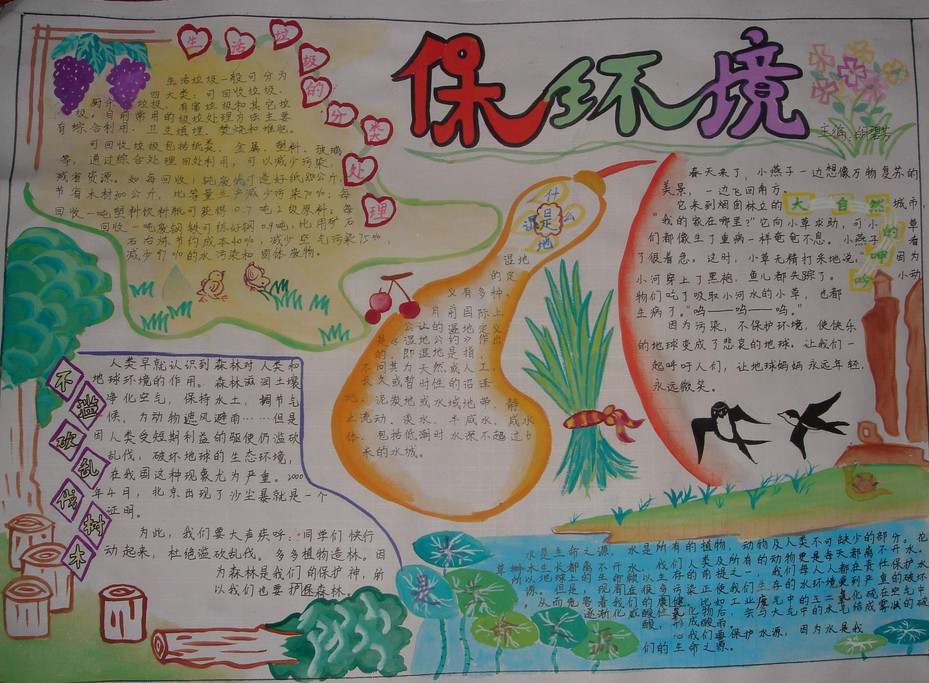 保环境
生活垃圾的分类处理
生活垃圾一般可分为
四大类：可回收垃圾、
厨余垃圾、有害垃圾和其它垃
圾。目前常用的垃圾处理方法主要
有综合利用、卫生填埋、焚烧和堆肥。
可回收垃圾包括纸类、金属、塑料、玻璃
等，通过综合处理回收利用，可以减少污染，
减省资源。如每回收1吨废纸可造好纸
回收一吨废钢铁可炼好钢0.9吨，比用矿石
石冶炼节约成本47%，减少空气污染75%，
减少97%的水污染和固体废物。
什么是湿地
湿地
的定
义有多种，
目前国际上
公认的湿地定义
是《湿地公约》作出
的，即湿地是指，
不问其为天然或人工、
长久或暂时性的沼泽
地、泥炭地或水域地带，静
止流动、淡水、半咸水、咸水
体，包括低潮时水深不超过6
米的水域。
春天来了，小燕子一边想像万物复苏的
美景，一边飞回南方。
它来到烟囱林立的大自然城市，
“我的家在哪里？”它向小草求助，可小草
们都像生了重病一样奄奄不息。小燕子看
了很着急。这时，小草无精打采地说，“因为
小河穿上了黑袍，鱼儿都失踪了。小动
物们吃了吸取小河水的小草，也都
生病了。”呜——呜——呜。”
因为污染，不保护环境，使快乐
的地球变成了悲哀的地球，让我们一
起呼吁人们，让地球妈妈永远年轻，
永远微笑。
不滥砍乱伐树木
人类早就认识到森林对人类和
地球环境的作用。森林巩固土壤
净化空气，保持水土，调节气
候，为动物遮风避雨……但是
因人类受短期利益的驱使仍滥砍
乱伐，破坏地球的生态环境，
在我国这种现象尤为严重。2000
年4月，北京出现了沙尘暴就是一个
证明。
为此，我们要大声疾呼：同学们快行
动起来，杜绝滥砍乱伐。多多植物造林。因
为森林是我们的保护神，所
以我们也要护医森林。
水是生命之源，水是所有的植物，动物及人类不可缺少的部分。花
草树木生长都离不开水，我们人类及所有的动物更是每天都离不开水。
所以地球上的生命赖以生存的前提之一，我们每人人都在责任保护水
源。但是，现有些很多污染正使我们生存的水环境受到严重的破坏
，从而危害着我们的健健。比如工业废气中的二氧化硫在空气中
逐渐化成酸性氧化物后，会与大气中的水气结成雾状的硫
酸，形成酸雨。
心我们要保护水源，因为水是我
们的生命之源。